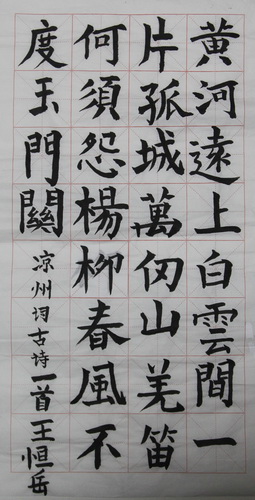 黄河遠上白雲間一
片孤城萬仞山羌笛
何須怨楊柳春風不
度玉門關
凉州词古诗一首王恒岳